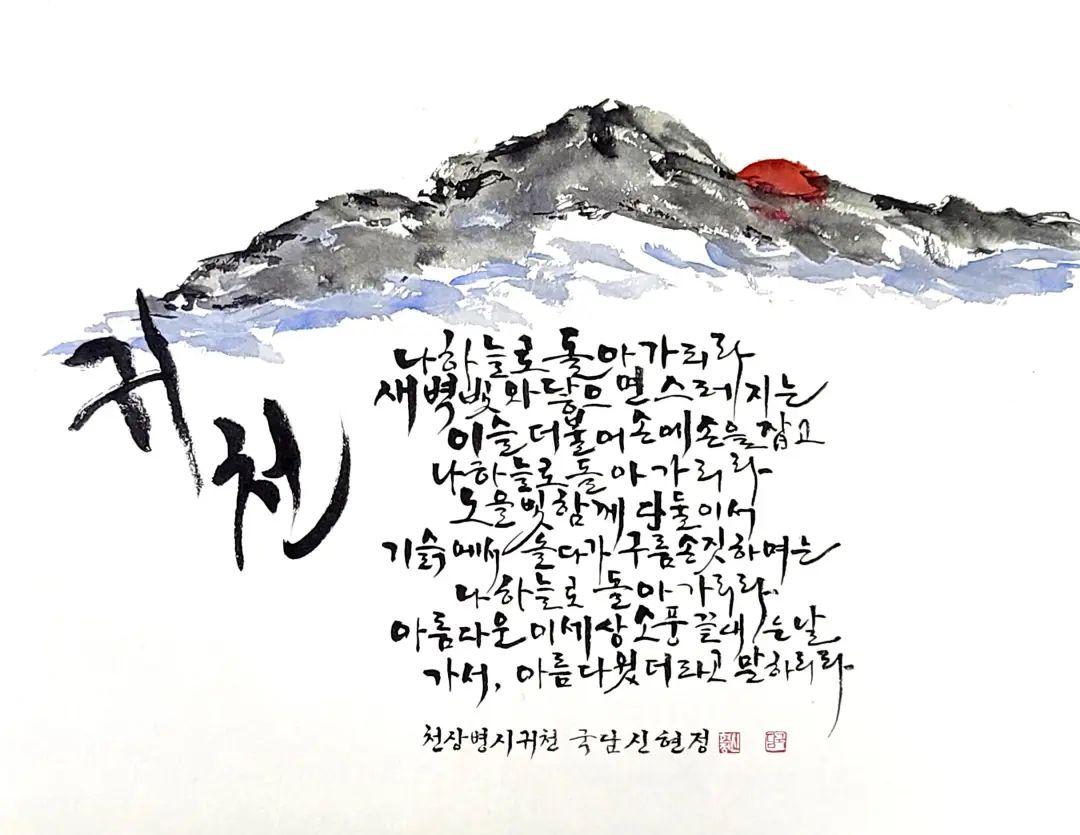 귀천
나 하늘로 돌아가리라
새벽빛 와 닿으면 스러지는
이슬 더불어 손에 손을 잡고
나 하늘로 돌아가리라
노을빛 함께 단둘이서
기슭에서 놀다가 구름 손짓하며는
나 하늘로 돌아가리라.
아름다운 이 세상 소풍 끝내는 날
가서, 아름다웠더라고 말하리라
천상병 시 귀천 국담 신현정